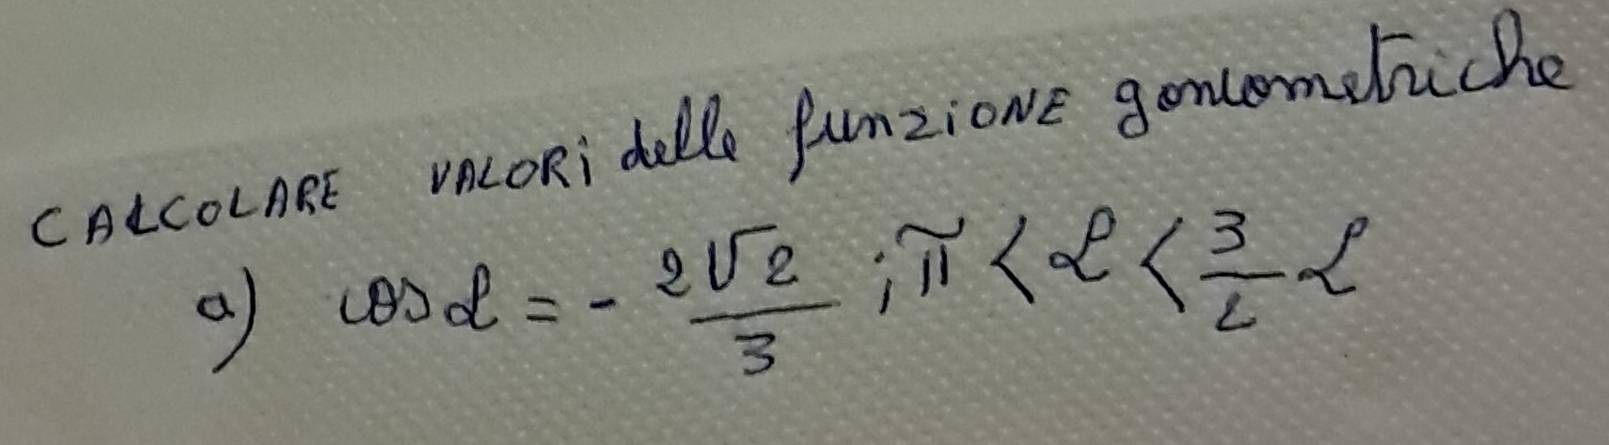 CALCOLARE VALORi delle funziONE goniometriche
a) cos α = - 2√2/3 ; π < α < 3/2 α